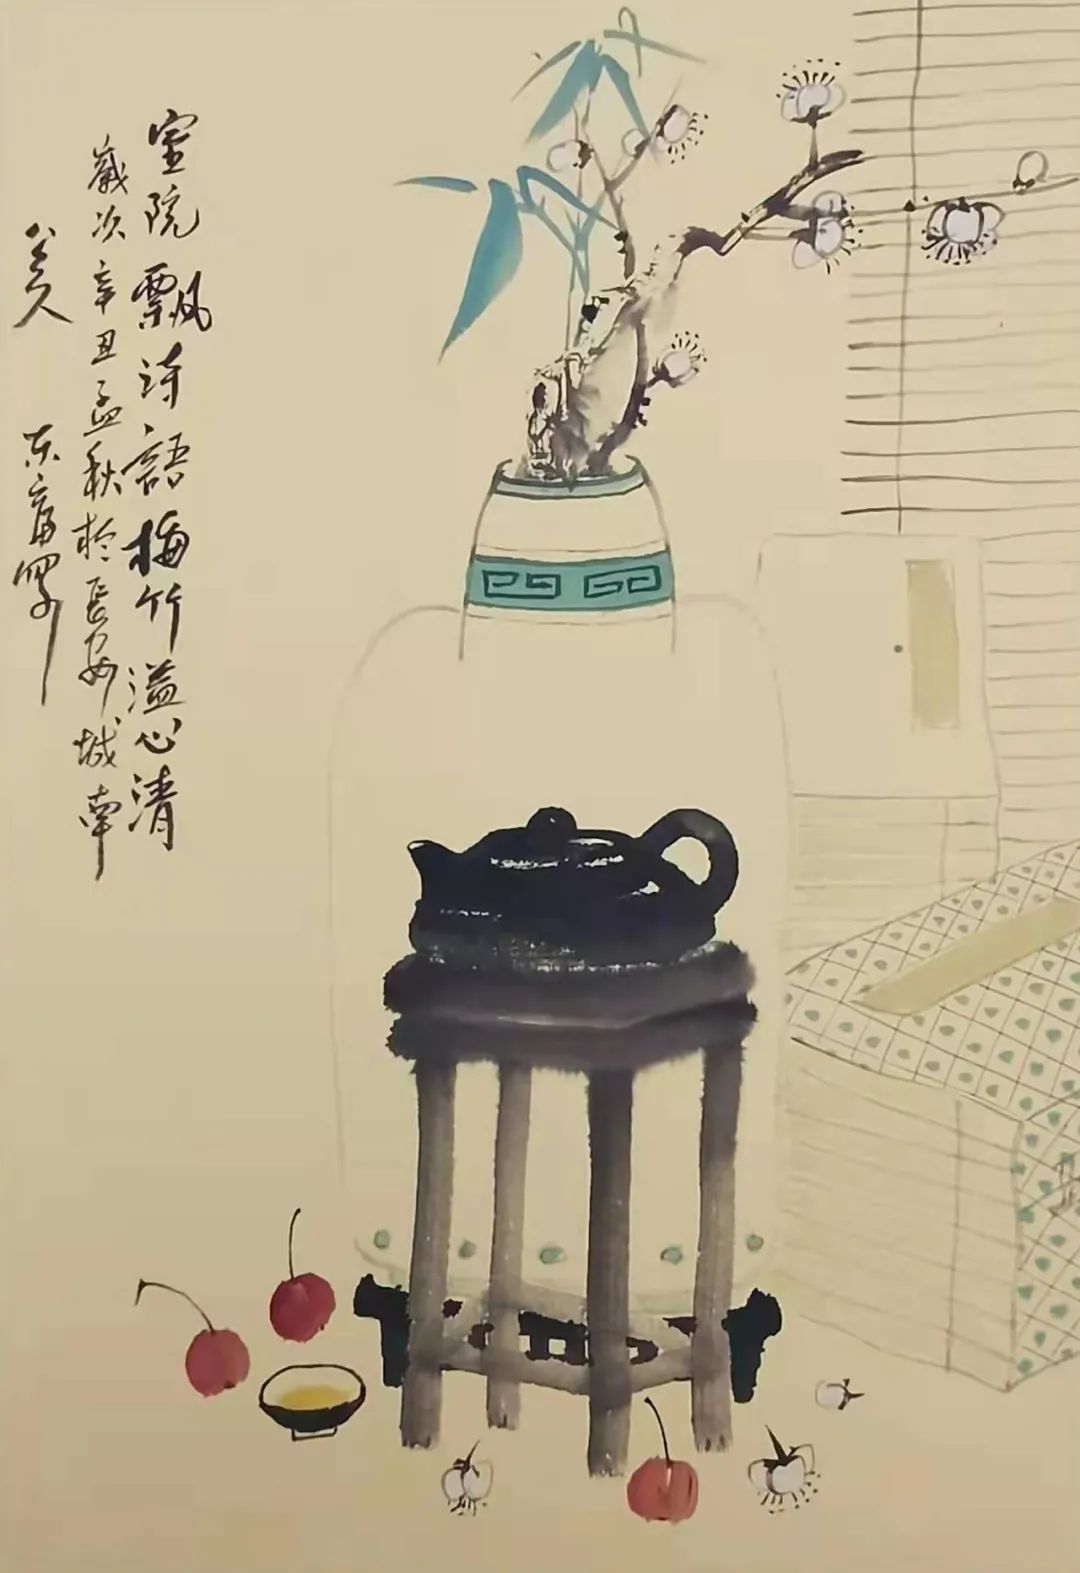 室院飘诗語梅竹溢心清
歲次辛丑孟秋於長安城南